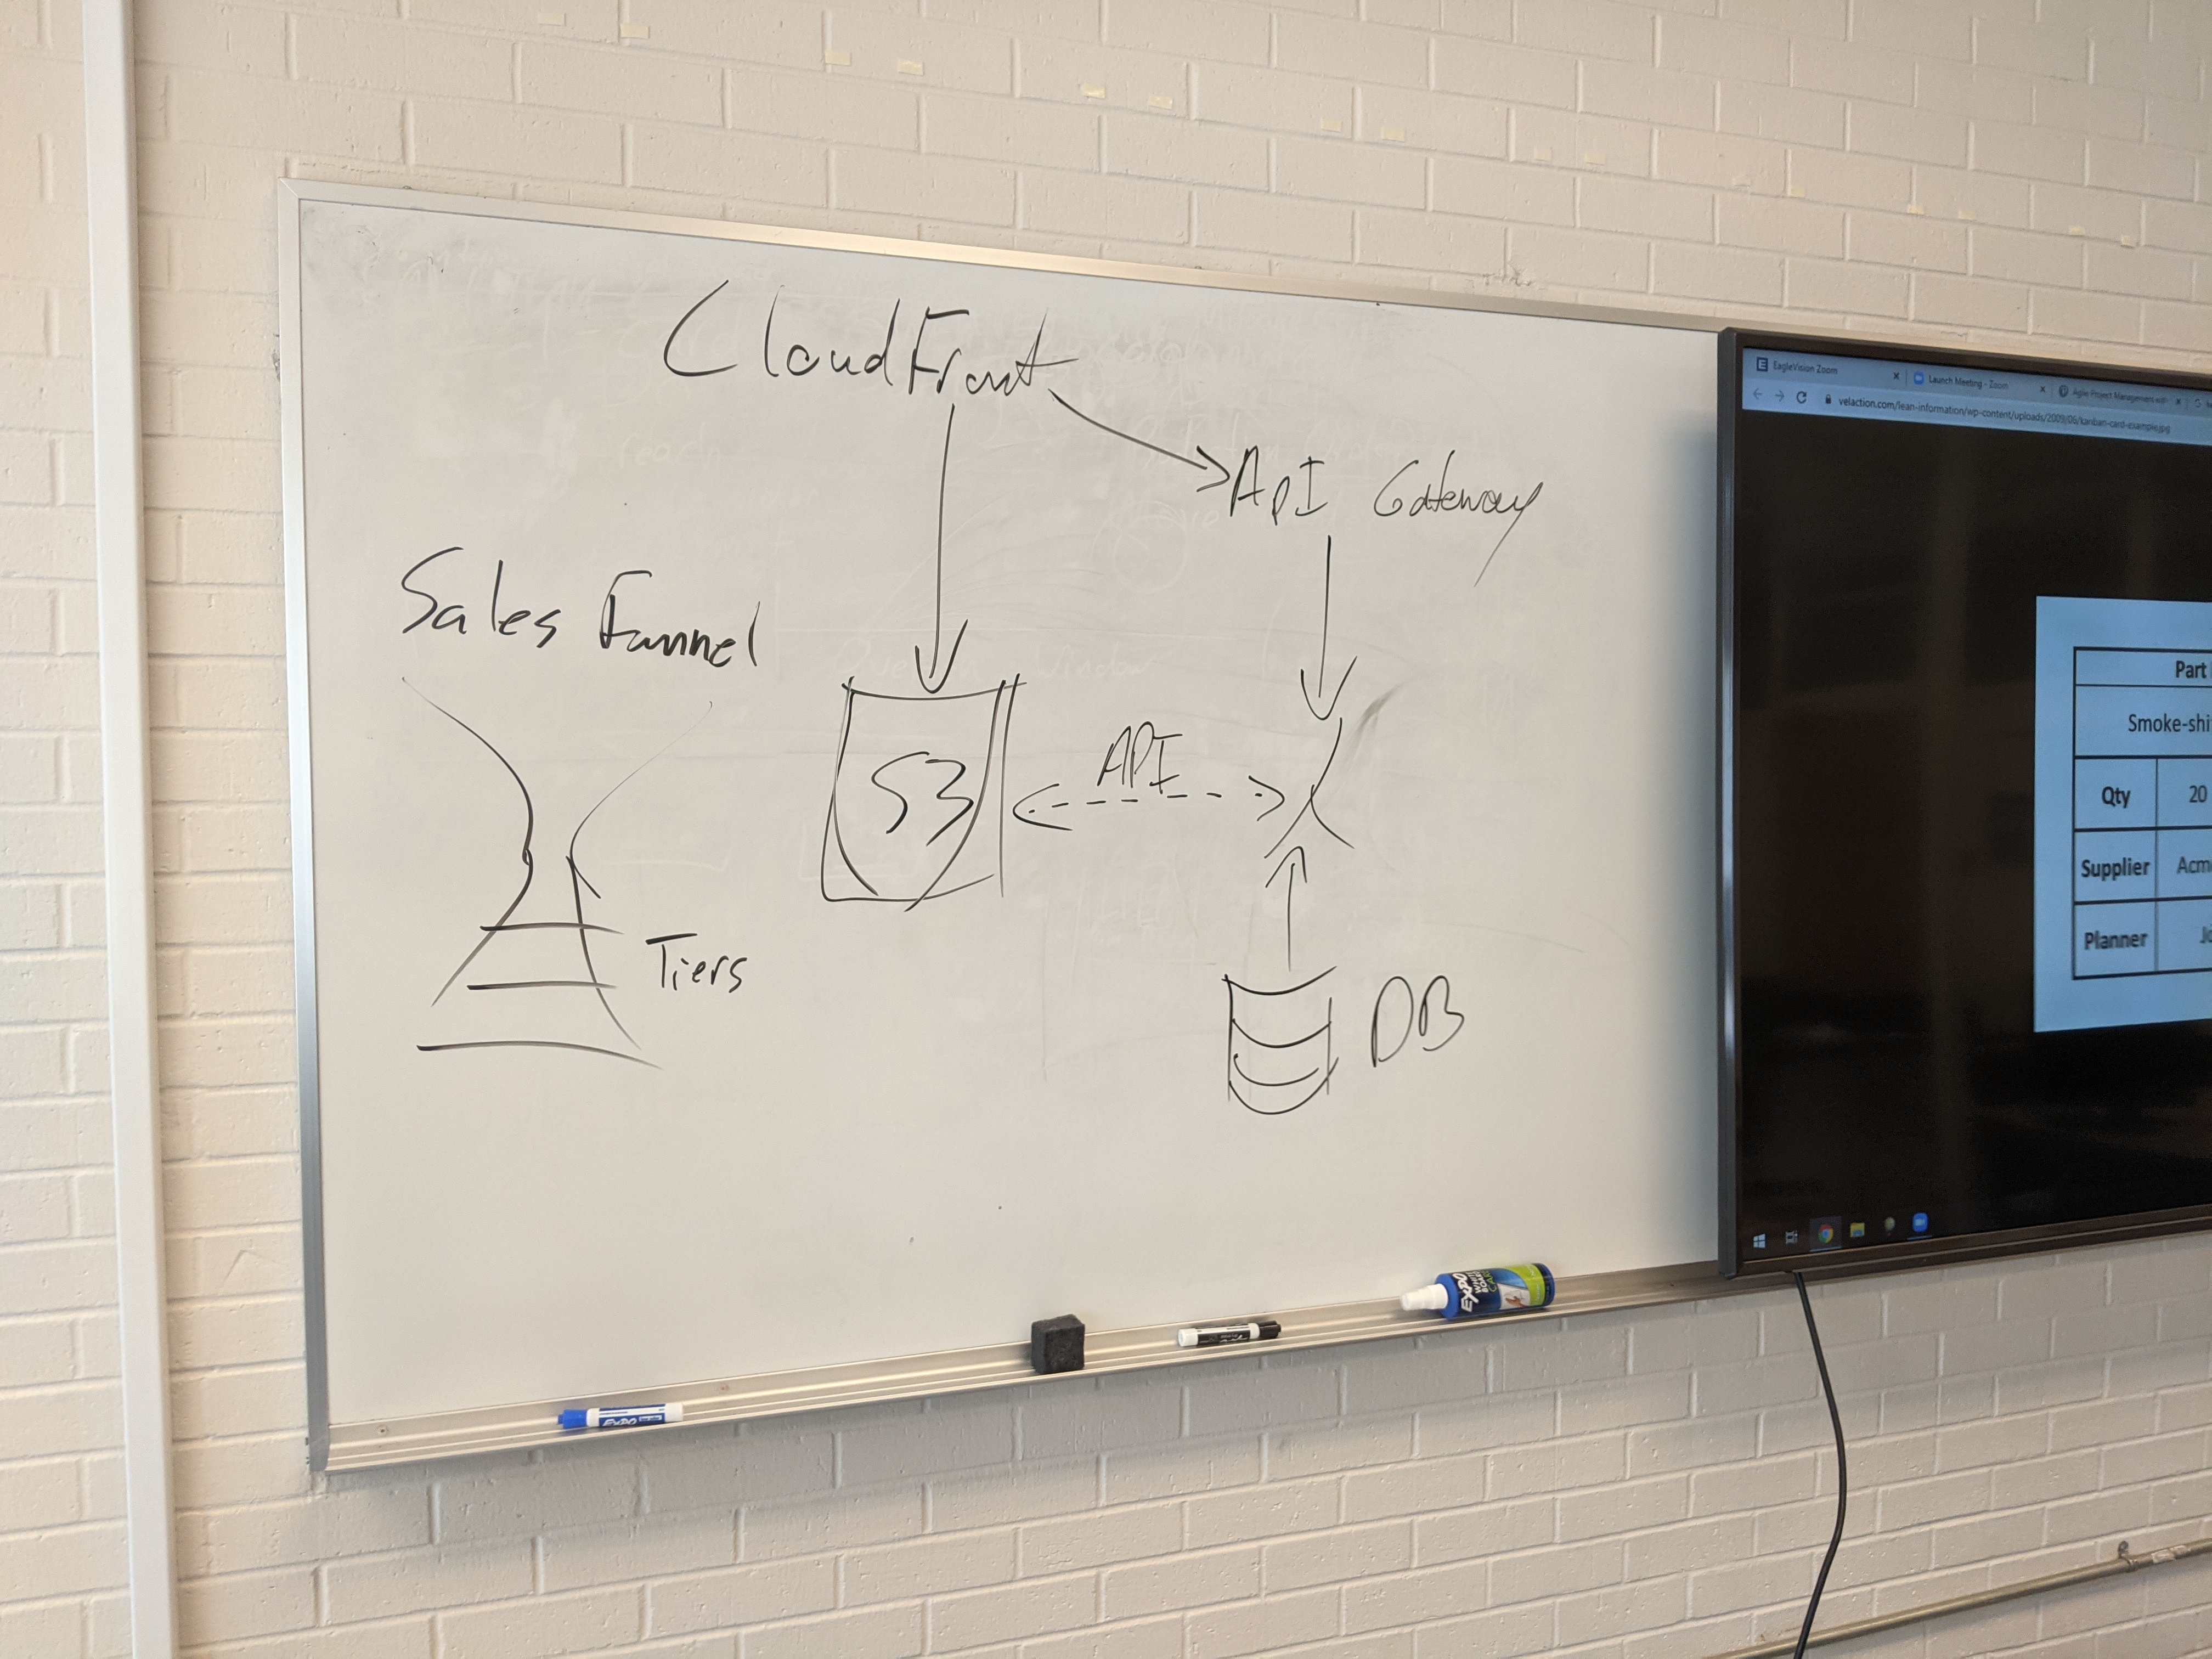 CloudFront
ApI Gateway
Sales Funnel
S3
API
Tiers
DB
EagleVision Zoom
Launch Meeting - Zoom
Agile Project Management with
velaction.com/lean-information/wp-content/uploads/2009/06/kanban-card-example.jpg
Part
Smoke-shi
Qty 20
Supplier Acm
Planner Jo
EXPO
EXPO